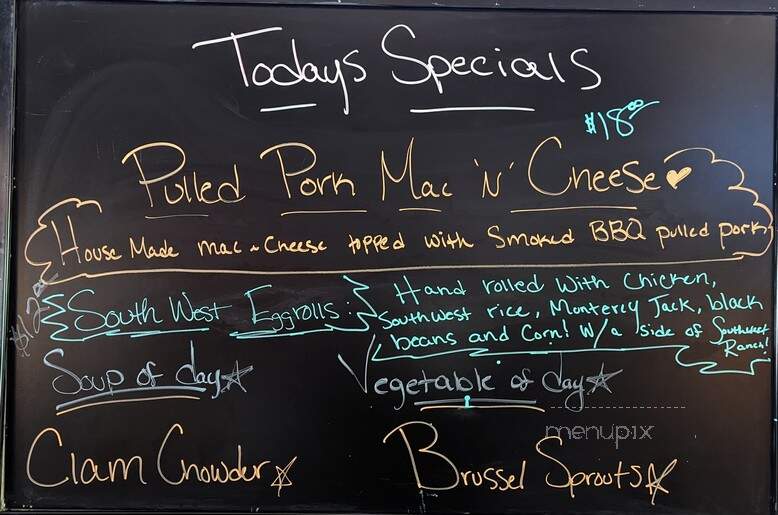 Todays Specials
$18.00
Pulled Pork Mac 'N' Cheese
House Made mac n Cheese topped with Smoked BBQ pulled pork
$12.00
South West Eggrolls:
Hand rolled with Chicken,
Southwest rice, Monterey Jack, black
beans and Corn! W/a side of Southwest
Ranch!
Soup of day
Vegetable of day
menupix
Clam Chowder
Brussel Sprouts